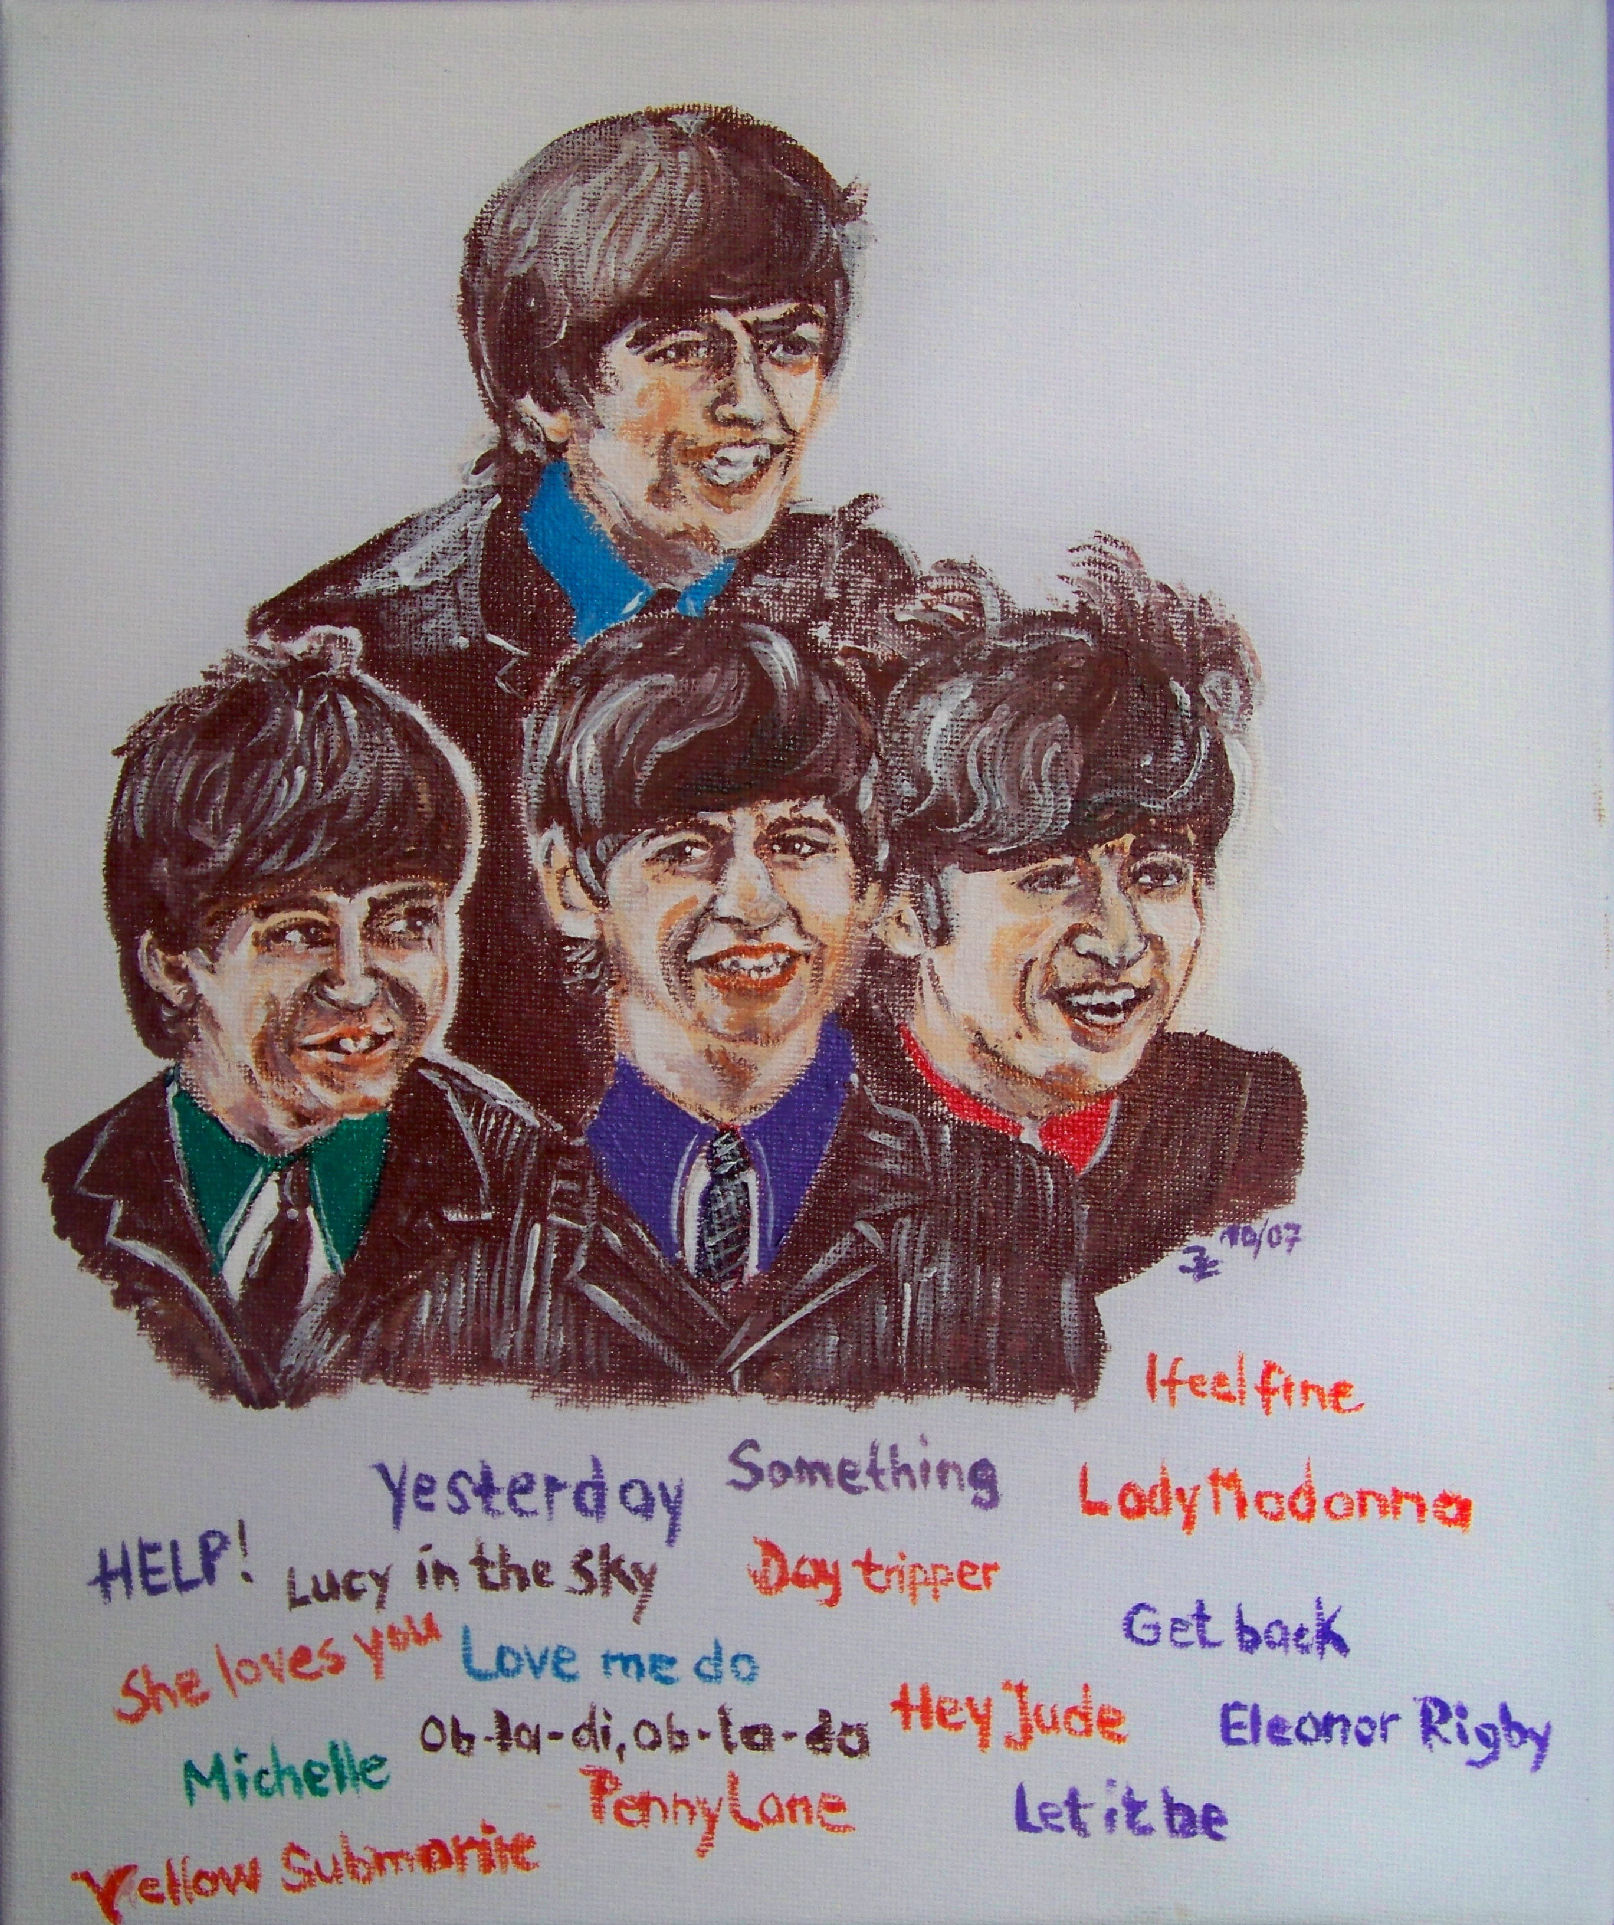 10/07
I feel fine
Yesterday
Something
Lady Madonna
HELP!
Lucy in the sky
Day tripper
Get back
She loves you
Love me do
Hey Jude
Eleonor Rigby
Ob-la-di, ob-la-da
Michelle
Penny Lane
Let it be
Yellow Submarine